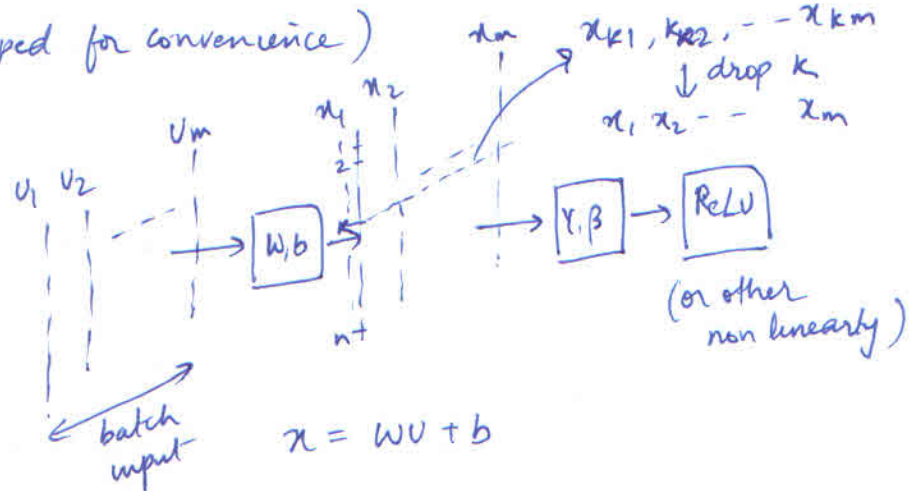 ped for convenience)
x_{k1}, x_{k2}, - - - x_{km}
↓ drop k
x_1 x_2 - - x_m
x_m
x_1 x_2
1
2
n
U_1 U_2 U_m
W, b
γ, β
ReLU
(or other
non linearly)
batch
input
x = WU + b